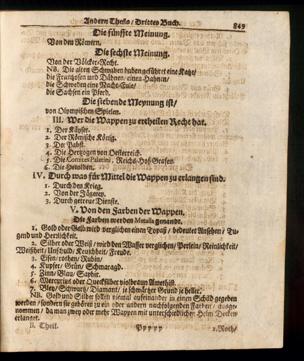 Andern Theils / Drittes Buch. 849
Die fünffte Meinung.
Von den Römern.
Die sechste Meinung.
Von der Völcker-Recht.
NB. Die alten Schwaben haben geführet eine Katze /
die Frantzosen und Dähnen / einen Hahnen /
die Schweden eine Nacht-Eule /
die Sachsen ein Pferd.
Die siebende Meynung ist /
von Olympischen Spielen.
III. Wer die Wappen zu ertheilen Recht hat.
1. Der Käyser.
2. Der Römische König.
3. Der Pabst.
4. Die Hertzogen von Oesterreich.
5. Die Comites Palatini, Reichs-Hof-Grafen.
6. Die Herolden.
IV. Durch was für Mittel die Wappen zu erlangen sind.
1. Durch den Krieg.
2. Von der Jägerey.
3. Durch getreue Dienste.
V. Von den Farben der Wappen.
Die Farben werden Metalla genannt.
1. Gold oder Geld wird verglichen einen Topas / bedeutet Ansehen / Tu-
gend und Herrlichkeit.
2. Silber oder Weiß / wird den Wasser verglichen / Perlein / Reinlichkeit /
Weißheit / Unschuld / Keuschheit / Freude.
3. Eisen / rothes / Rubin /
4. Kupfer / Grün / Schmaragd.
5. Zinn / Blau / Saphir.
6. Mercurius oder Quecksilber violbraun Amethist.
7. Bley / Schwartz / Diamant / je schwärtzer Grund je heller.
NB. Gold und Silber sollen niemal auf einander in einen Schild gegeben
werden / sondern sie gehören zu ein oder andern nachfolgenden Farben / ausge-
nommen / da man zwey oder mehr Wappen mit unterschiedlicher Helm Decken
erlanget.
II. Theil. Ppppp 2. Roth /